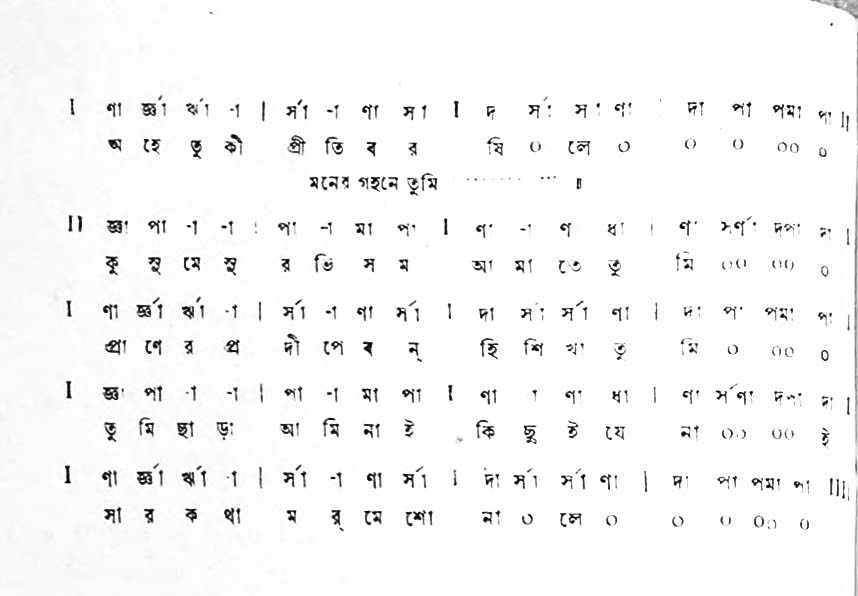 I ণা র্জ্ঞা র্ঋা -া | র্সা -া ণা র্সা I দা র্সা র্সা ণা | দা পা পমা পা II
অ হে তু কী প্রী তি ব র ষি ০ লে ০ ০ ০ ০০ ০
মনের গহনে তুমি ········ ··· ॥
II জ্ঞা পা -া -া | পা -া মা পা I ণা -া ণা ধা | ণা র্সর্ণা দপা দা I
কু সু মে সু র ভি স ম আ মা তে তু মি ০০ ০০ ০
I ণা র্জ্ঞা র্ঋা -া | র্সা -া ণা র্সা I দা র্সা র্সা ণা | দা পা পমা পা I
প্রা ণে র প্র দী পে ব ন্ হি শি খা তু মি ০ ০০ ০
I জ্ঞা পা -া -া | পা -া মা পা I ণা -া ণা ধা | ণা র্সণা দপা দা I
তু মি ছা ড়া আ মি না ই কি ছু ই যে না ০০ ০০ ই
I ণা র্জ্ঞা র্ঋা -া | র্সা -া ণা র্সা I দা র্সা র্সা ণা | দা পা পমা পা IIII
সা র ক থা ম র্ মে শো না ০ লে ০ ০ ০ ০০ ০